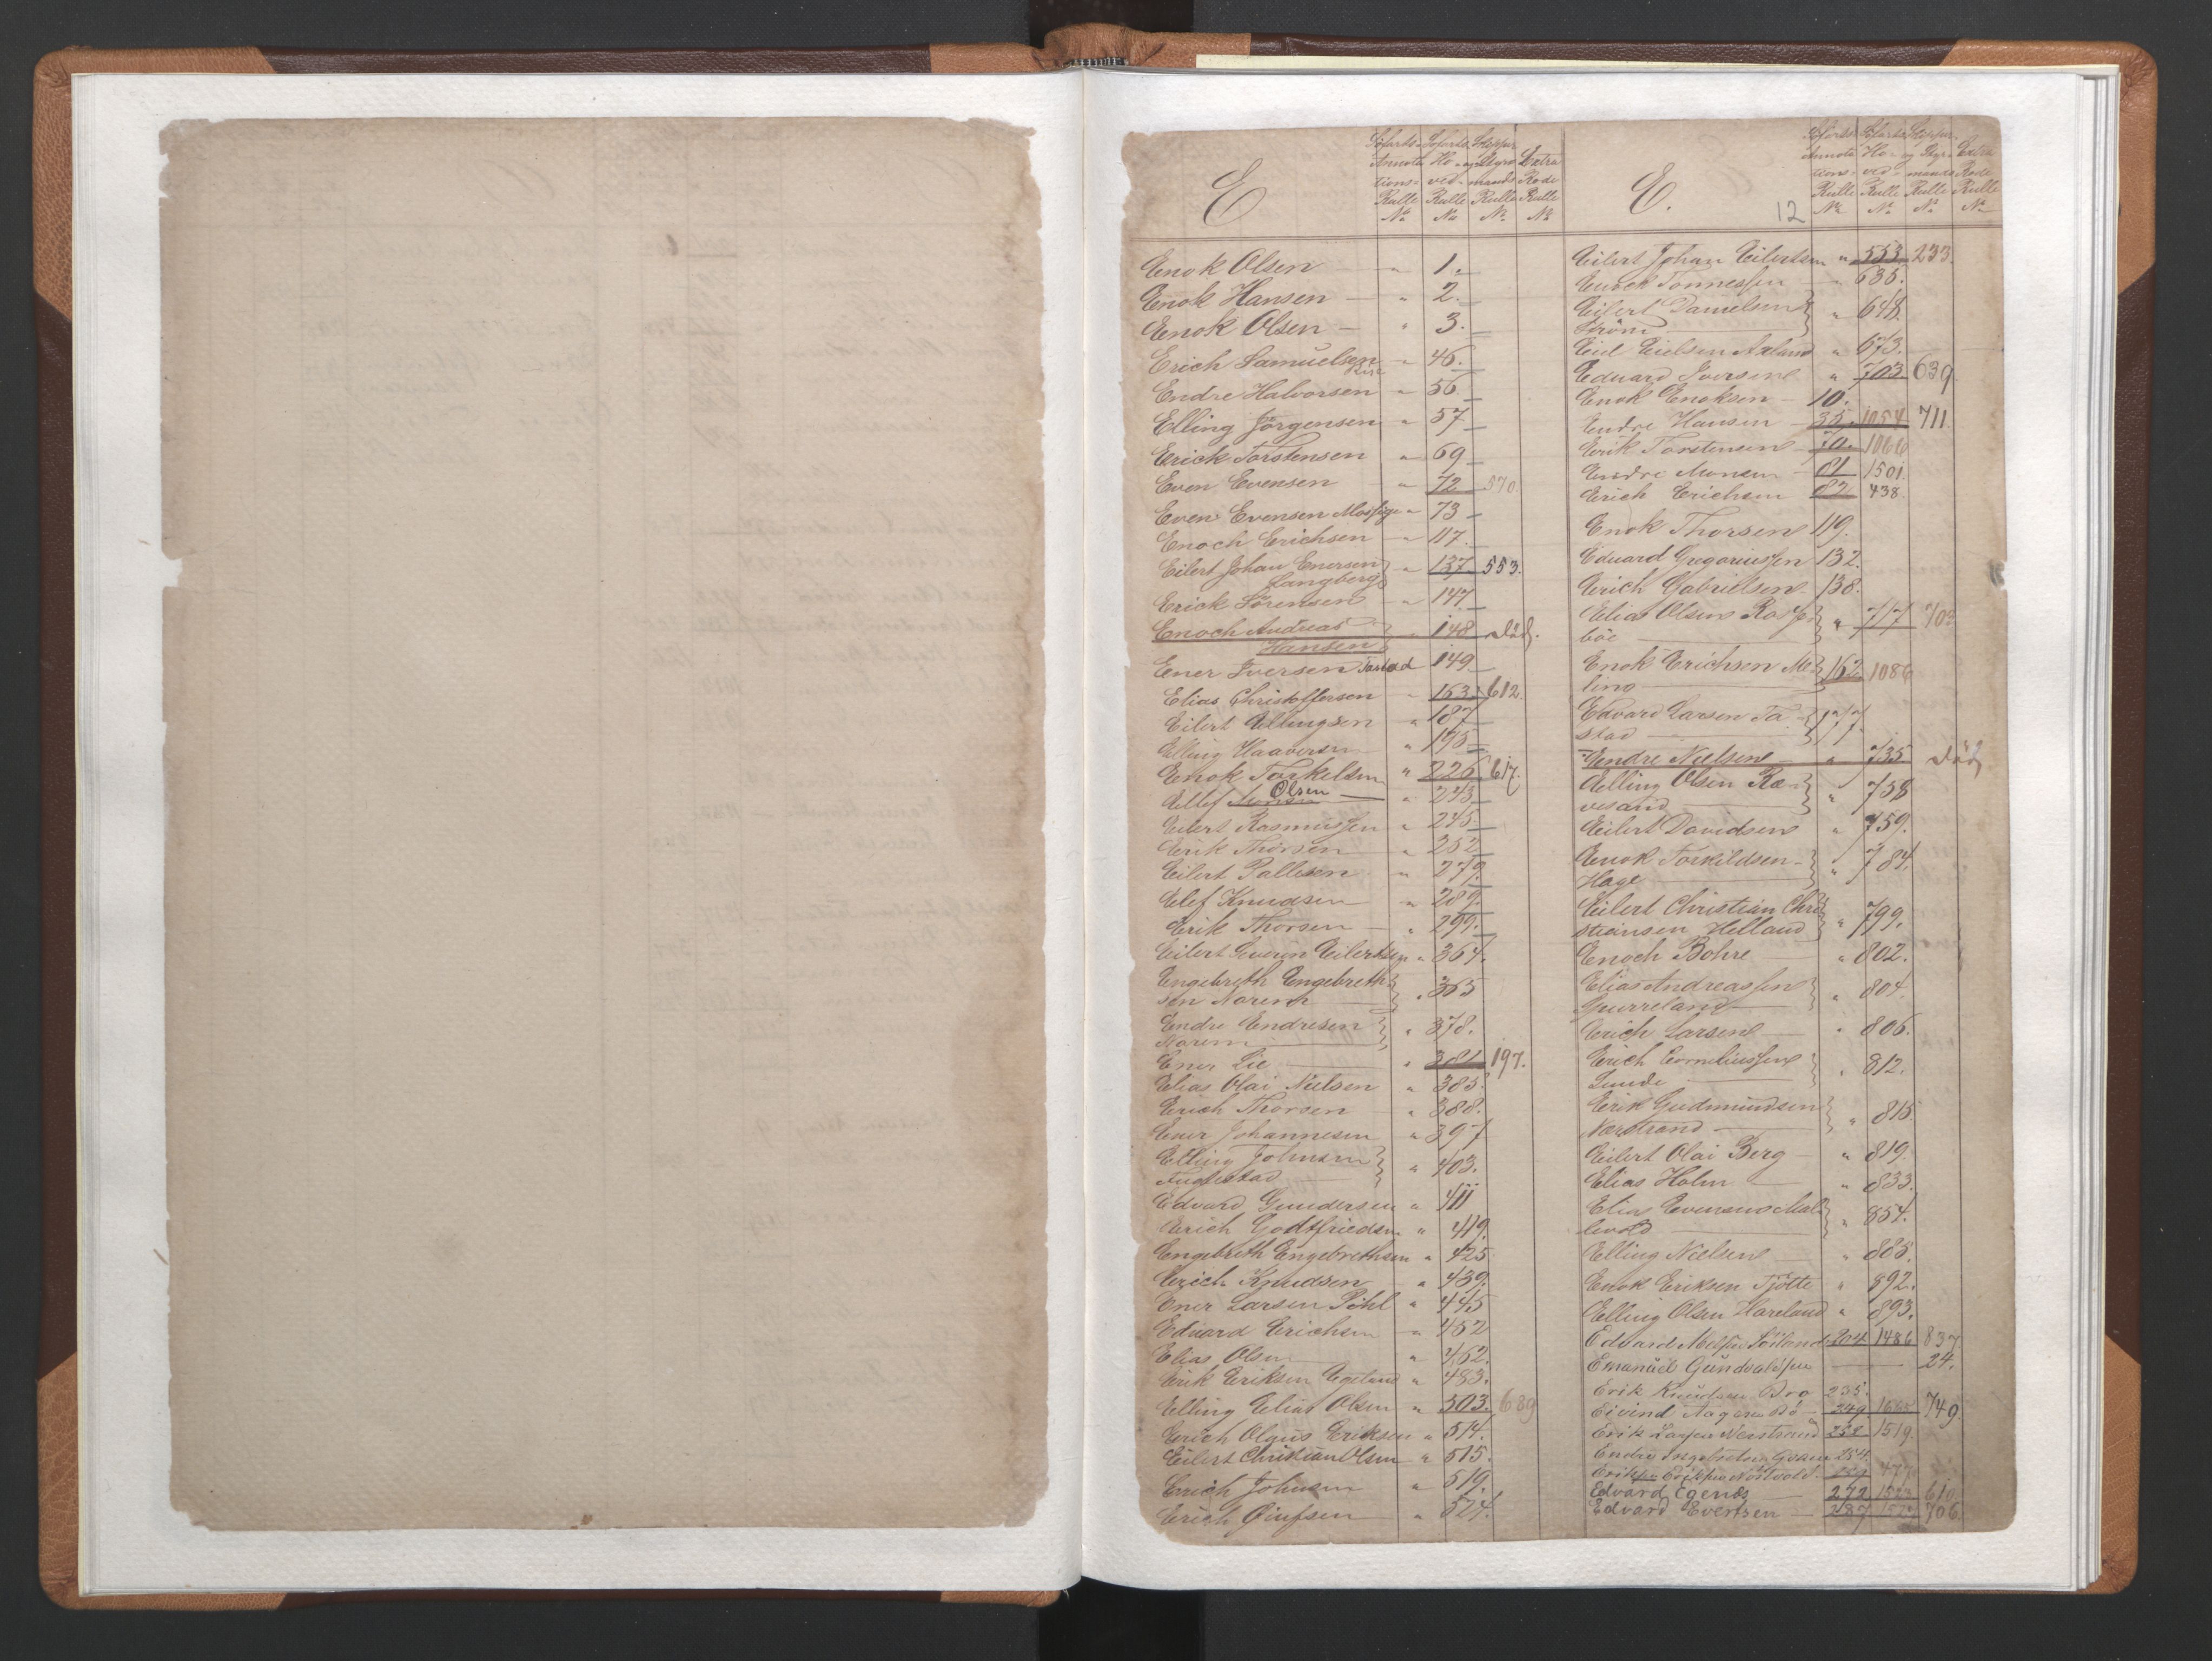 E
Söfarts- Annota tions- Rulle No
Söfarts Ho- ved- Rulle No
Skipper og Styr mands Rulle No
Extra Rode Rulle No
Enok Olsen — " 1.
Enok Hansen — " 2.
Enok Olsen — " 3.
Erich Samuelsen " 46.
Endre Halvorsen " 56
Elling Jörgensen " 57
Erick Torstensen " 69
Even Evensen " 72 570.
Even Evensen Mossige " 73
Enoch Erichsen " 117.
Eilert Johan Enersen " 137 553.
Langberg
Erick Sörensen " 147
Enoch Andreas " 148 död.
Hansen
Ener Iversen Tastad 149
Elias Christoffersen " 163. 612.
Eilert Ellingsen " 187
Elling Haaversen " 195
Enok Torkelsen " 226 617.
Ellef Olsen — " 243
Eilert Rasmussen " 245.
Erik Thorsen " 252
Eilert Pallesen " 279.
Elef Knudsen " 289.
Erik Thorsen " 299.
Eilert Severin Eilertsen " 364.
Engebreth Engebreth-
sen Narem " 365
Endre Endresen
Norem " 378.
Ener Lie " 381 197.
Elias Olai Nielsen " 385.
Erich Thorsen " 388.
Ener Johannesen " 397
Elling Johnsen
Fuglestad " 403.
Edvard Gundersen " 411
Erich Godtfriedsen " 419.
Engebreth Engebrethsen " 425
Erich Knudsen " 439.
Ener Larsen Pihl " 445
Eduard Erichsen " 452
Elias Olsen " 462.
Erik Eriksen Egeland " 483.
Elling Elias Olsen " 503. 689
Erich Olaus Eriksen " 514.
Eilert Christian Olsen " 515.
Erich Johnsen " 519.
Erich Einfsen " 524.
E.
12
Söfarts Annota tions- Rulle No
Söfarts Ho- ved- Rulle No
Skipper og Styr- mands Rulle No
Extra Rode Rulle No
Eilert Johan Eilertsen " 553. 233.
Enoch Tönnessen " 635.
Eilert Danielsen
Ström " 648.
Eid Eielsen Axland " 673.
Eduard Iversen " 703 639
Enok Enoksen — 10.
Endre Hansen — 35. 1054 711.
Erik Torstensen — 70. 1066
Endre Monsen — 81 1501.
Erich Erichsen 82. 438.
Enok Thorsen 119.
Eduard Gregoriussen 132.
Erich Gabrielsen 138.
Elias Olsen Ross
böe " 717 702
Enok Erichsen Me-
ling 162. 1086
Edvard Larsen Ta-
stad 177
Endre Nielsen " 735 död
Elling Olsen Ræ-
vesand " 758
Eilert Davidsen " 759.
Enok Torkildsen
Hage " 784.
Eilert Christian Chri
stiansen Helland " 799.
Enoch Bohre " 802.
Elias Andreassen
Quirreland " 804.
Erich Larsen " 806.
Erich Corneliussen
Lunde " 812.
Erik Gudmundsen
Nærstrand " 815
Eilert Olai Berg — " 819.
Elias Holm " 833.
Elias Evensen Mal-
levold " 854.
Elling Nielsen " 888.
Enok Eriksen Tjötte " 892.
Elling Olsen Hareland " 893.
Edvard Soiland 204 1486 837
Emanuel Gundvaldsen — 24.
Erik Knudsen Bro 235.
Eivind Aagesen Bö 249 749.
Erik Larsen Nærstrand 252 1519.
Endre 254.
Erik Eriksen
Edvard Egenes 272 610.
Edvard Evertsen — 287 706.